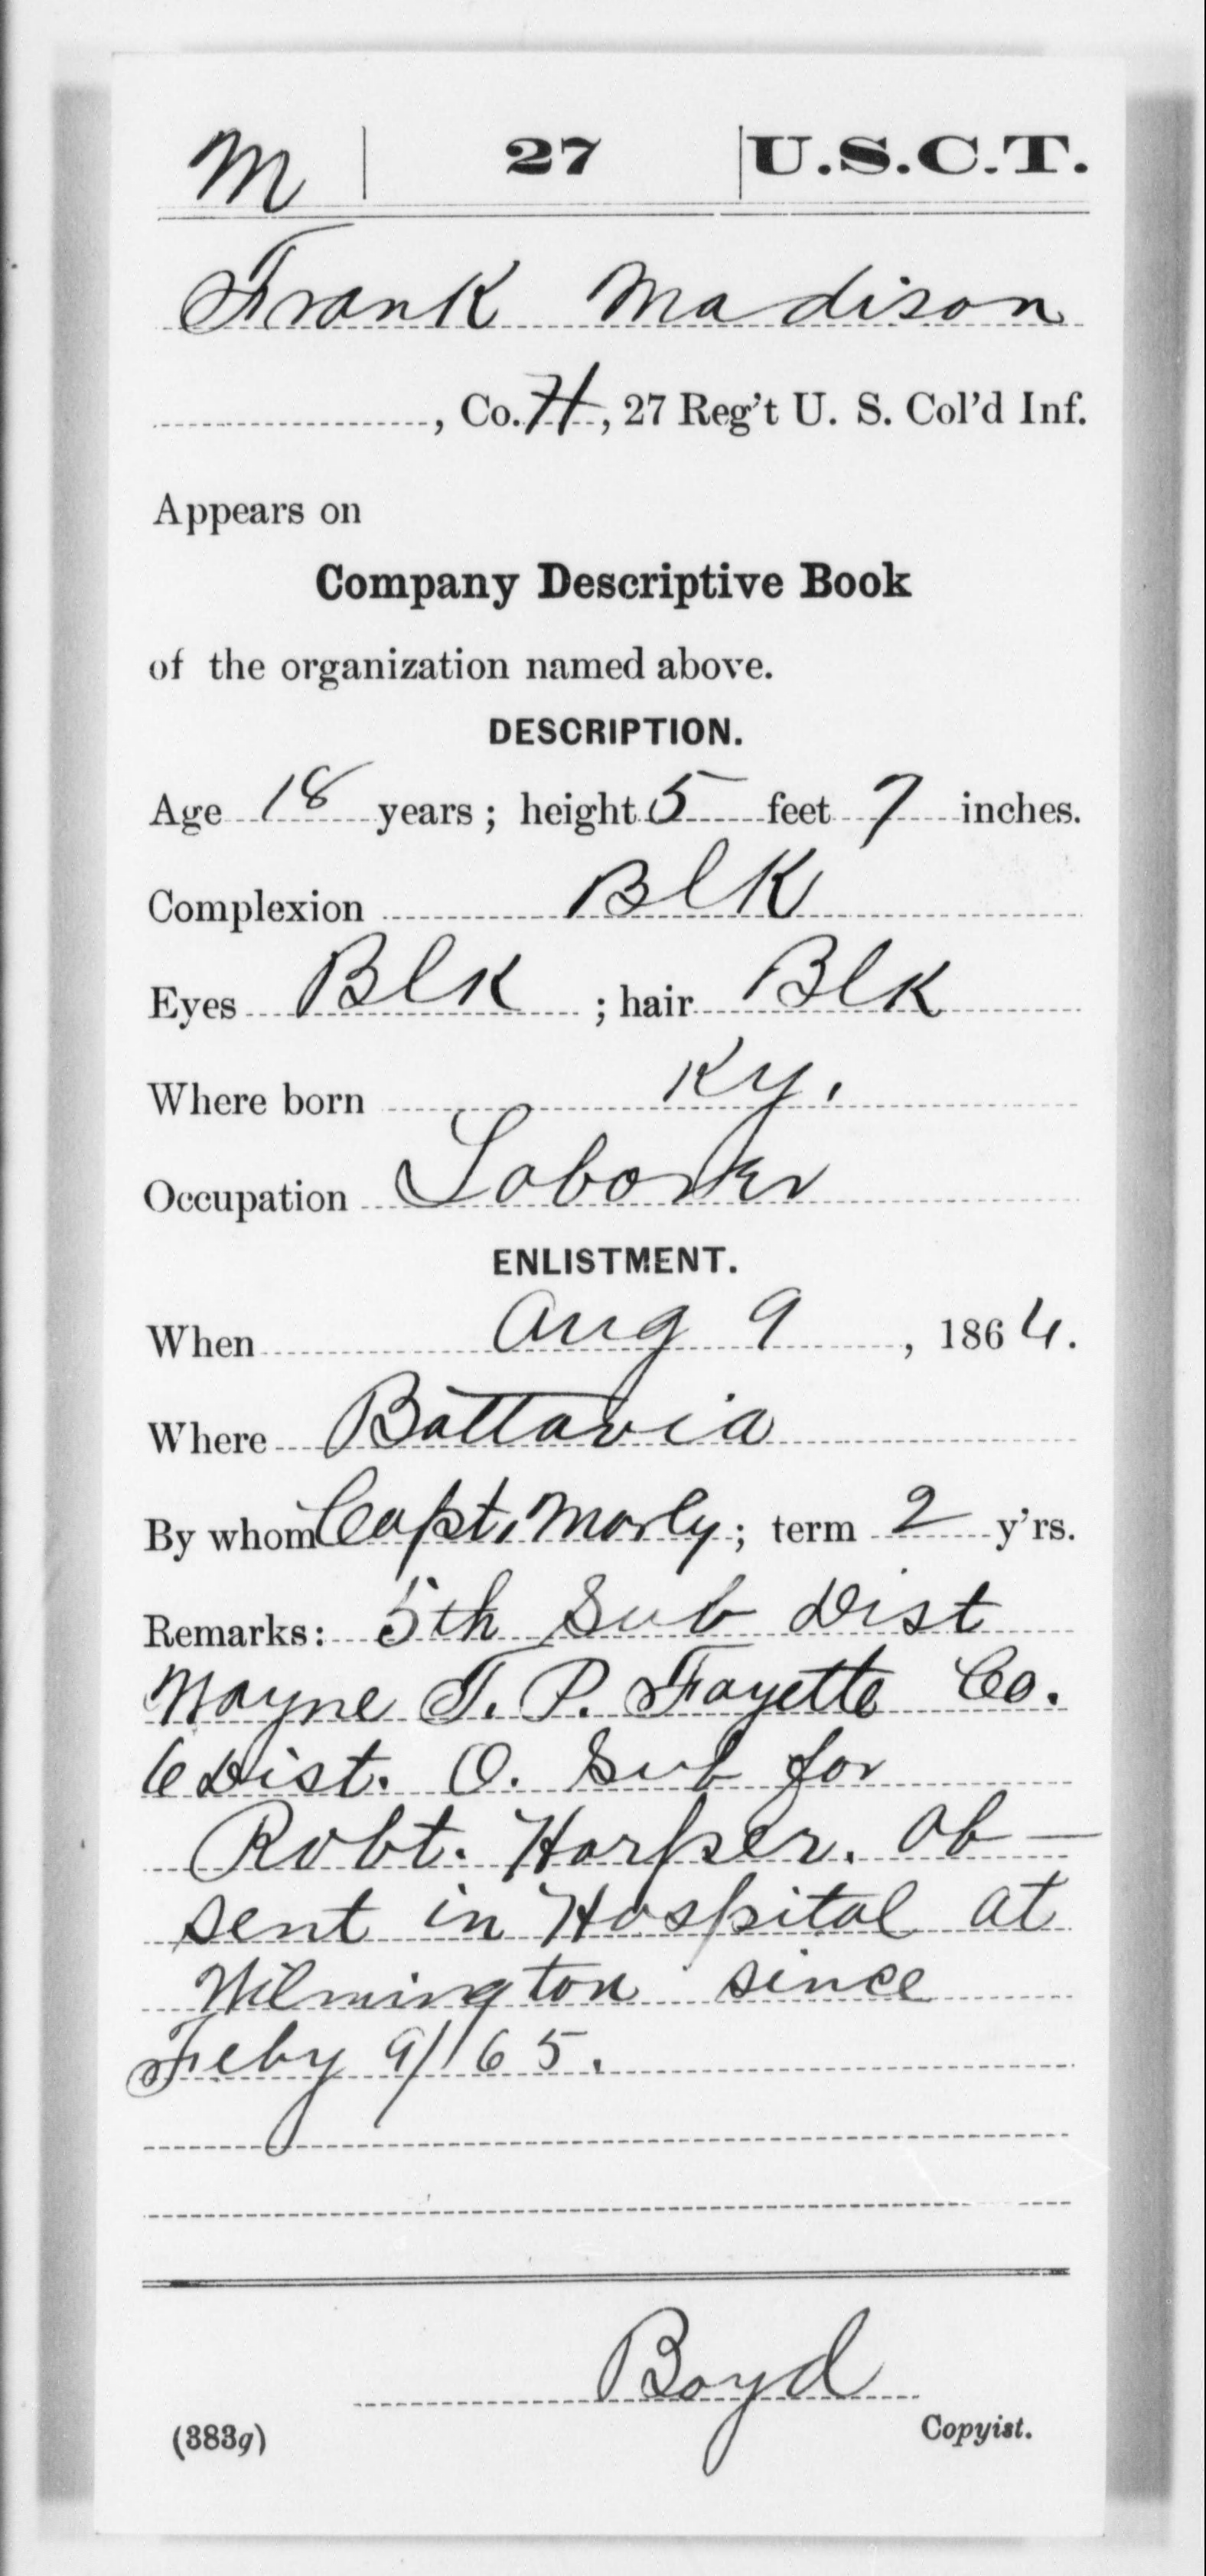 M | 27 | U.S.C.T.
Frank Madison
, Co. H, 27 Reg't U. S. Col'd Inf.
Appears on
Company Descriptive Book
of the organization named above.
DESCRIPTION.
Age 18 years; height 5 feet 7 inches.
Complexion Blk
Eyes Blk ; hair Blk
Where born Ky.
Occupation Laborer
ENLISTMENT.
When Aug 9, 1864.
Where Battavia
By whom Capt. Morly; term 2 y'rs.
Remarks: 5th Sub Dist
Wayne T. P. Fayette Co.
6 Dist. O. Sub for
Robt. Harper. Ab-
sent in Hospital at
Wilmington since
Feby 9/65.
Boyd
(383g) Copyist.